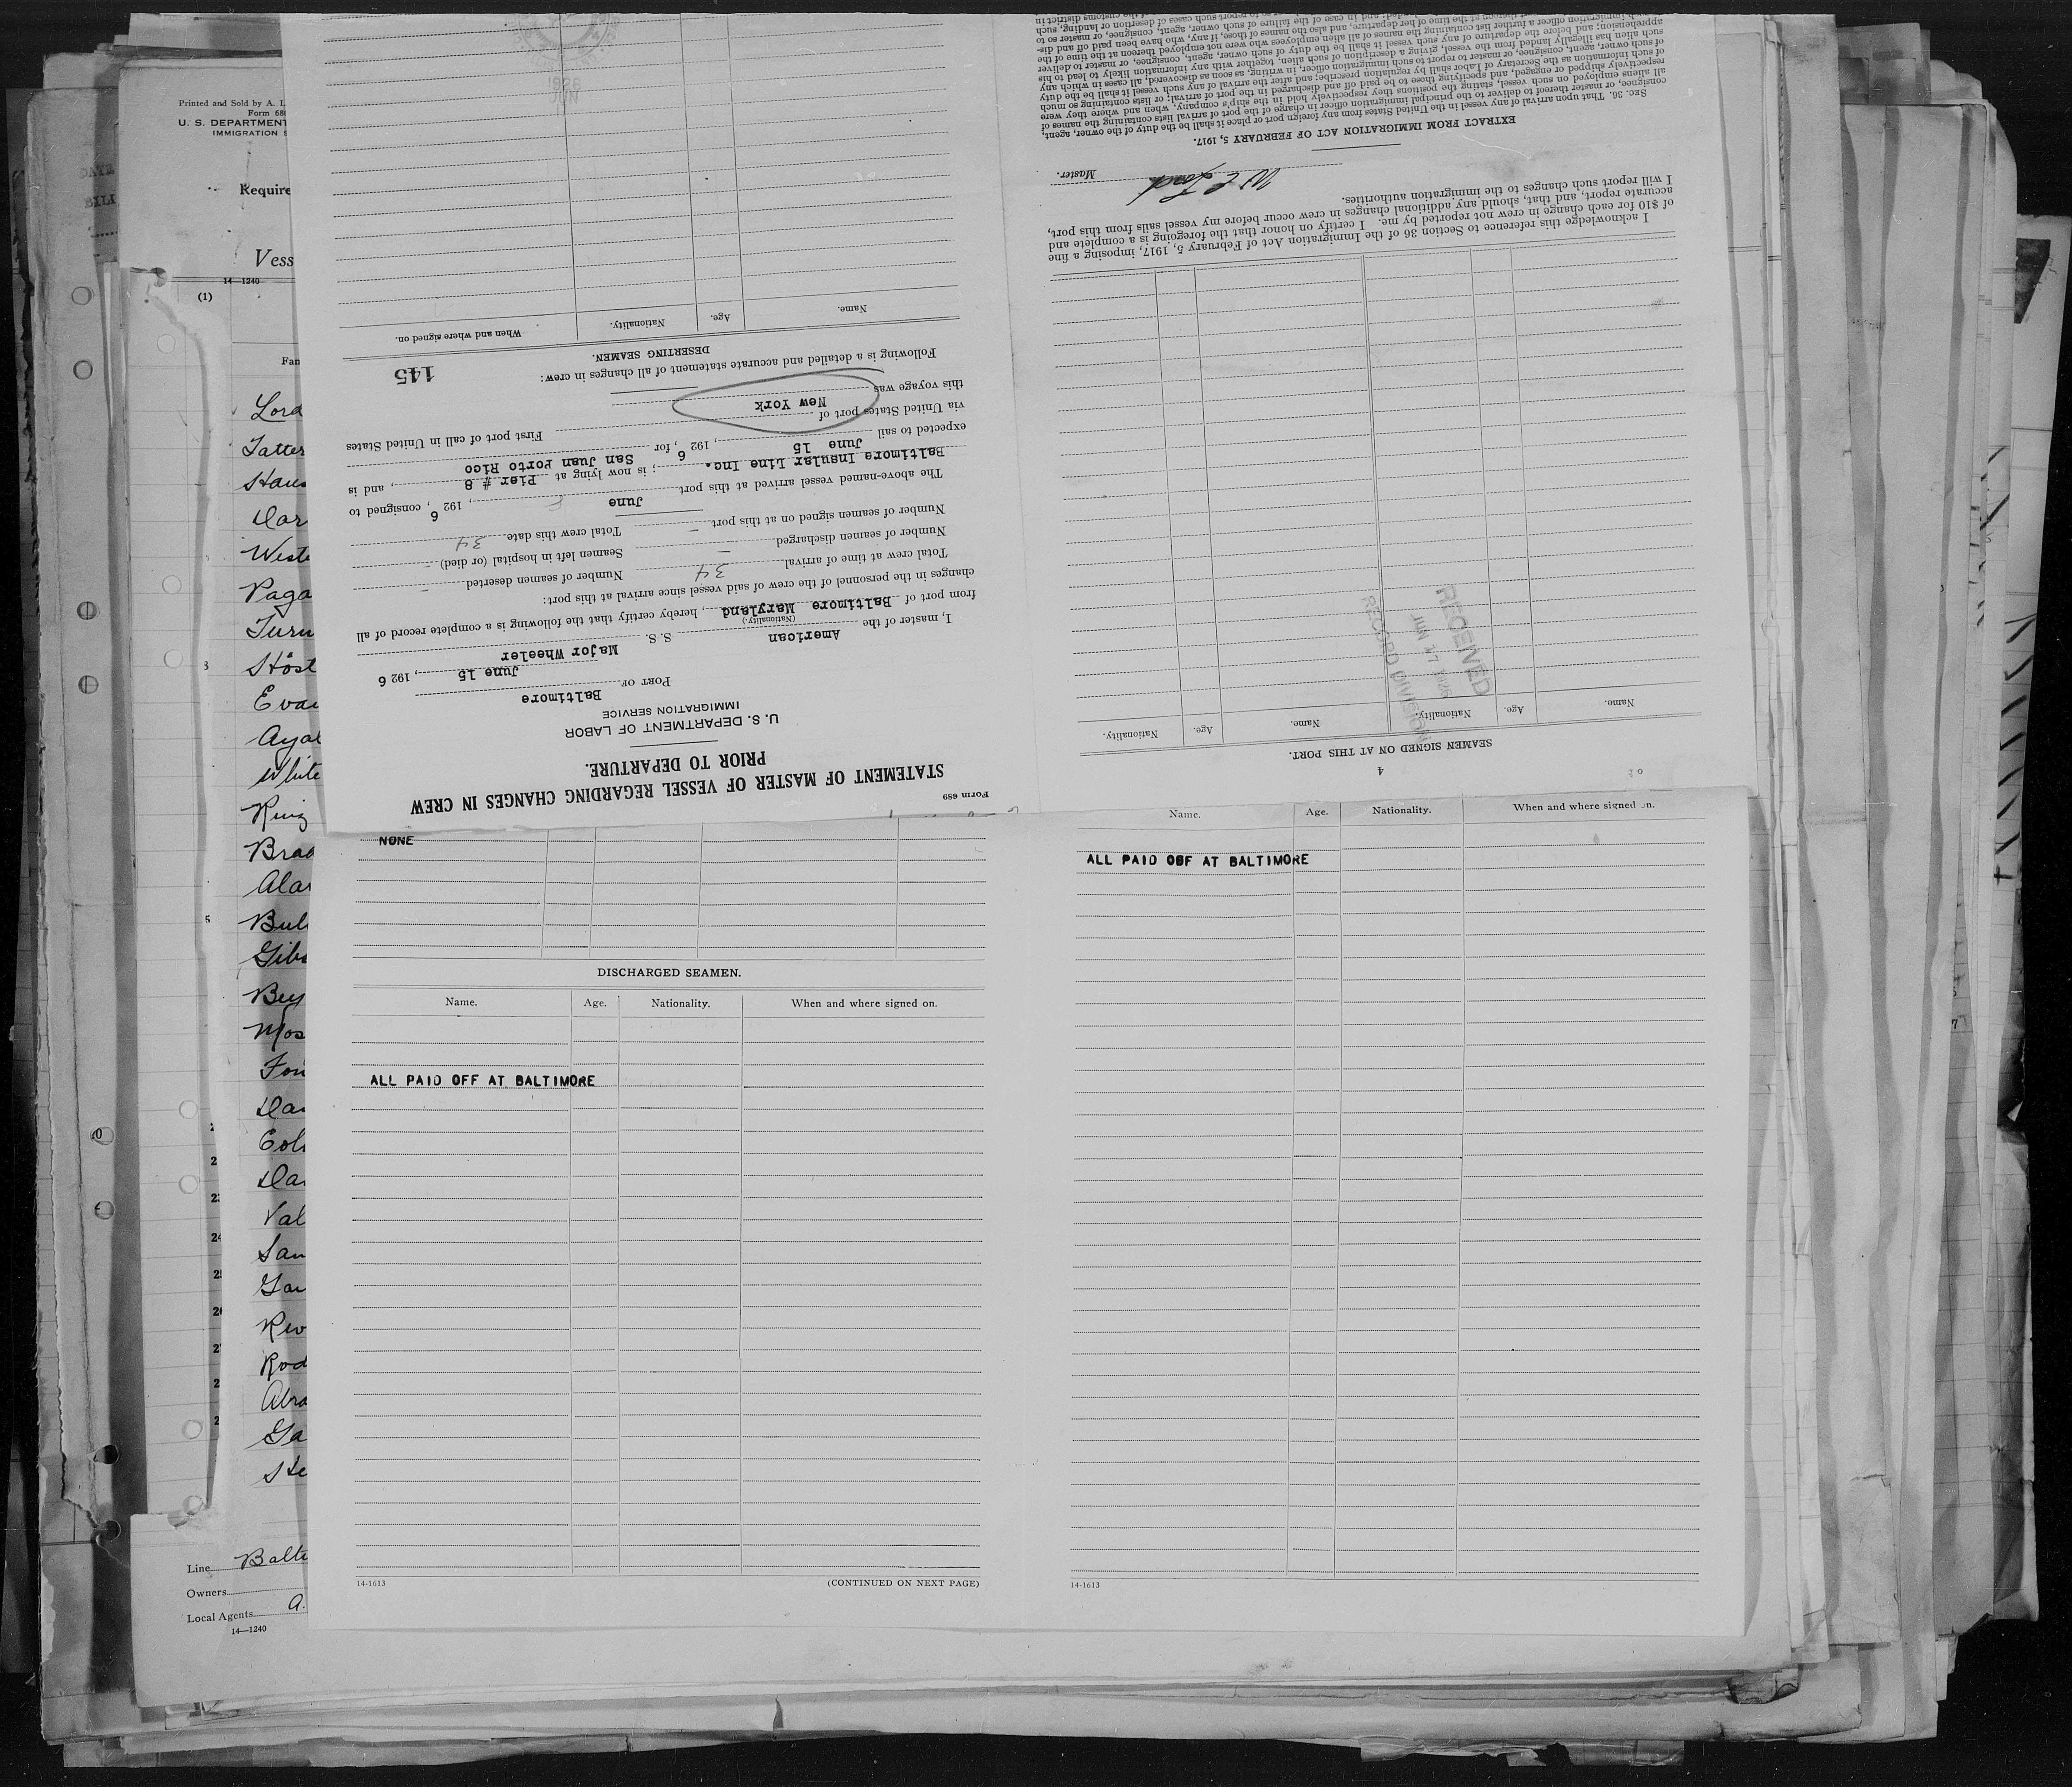 Form 689
STATEMENT OF MASTER OF VESSEL REGARDING CHANGES IN CREW
PRIOR TO DEPARTURE.
U. S. DEPARTMENT OF LABOR
IMMIGRATION SERVICE
PORT OF Baltimore
June 15, 1926
I, master of the American S. S. Major Wheeler
(Nationality.)
from port of Baltimore Maryland, hereby certify that the following is a complete record of all
changes in the personnel of the crew of said vessel since arrival at this port:
Total crew at time of arrival 34 Number of seamen deserted -
Number of seamen discharged - Seamen left in hospital (or died) -
Number of seamen signed on at this port - Total crew this date 34
The above-named vessel arrived at this port June, 1926, consigned to
Baltimore Insular Line Inc.; is now lying at Pier # 8, and is
expected to sail June 15, 1926, for San Juan Porto Rico
via United States port of New York First port of call in United States
this voyage was
Following is a detailed and accurate statement of all changes in crew:
145
DESERTING SEAMEN.
Name. Age. Nationality. When and where signed on.
JUN
4
SEAMEN SIGNED ON AT THIS PORT.
Name. Age. Nationality. Name. Age. Nationality.
RECEIVED
JUN 17 1926
RECORD DIVISION
I acknowledge this reference to Section 36 of the Immigration Act of February 5, 1917, imposing a fine
of $10 for each change in crew not reported by me. I certify on honor that the foregoing is a complete and
accurate report, and that, should any additional changes in crew occur before my vessel sails from this port,
I will report such changes to the immigration authorities.
W E Lord Master.
EXTRACT FROM IMMIGRATION ACT OF FEBRUARY 5, 1917.
SEC. 36. That upon arrival of any vessel in the United States from any foreign port or place it shall be the duty of the owner, agent,
consignee, or master thereof to deliver to the principal immigration officer in charge of the port of arrival lists containing the names of
all aliens employed on such vessel, stating the positions they respectively hold in the ship's company, when and where they were
respectively shipped or engaged, and specifying those to be paid off and discharged in the port of arrival; or lists containing so much
of such information as the Secretary of Labor shall by regulation prescribe; and after the arrival of any such vessel it shall be the duty
of such owner, agent, consignee, or master to report to such immigration officer, in writing, as soon as discovered, all cases in which any
such alien has illegally landed from the vessel, giving a description of such alien, together with any information likely to lead to his
apprehension; and before the departure of any such vessel it shall be the duty of such owner, agent, consignee, or master to deliver
immigration officer a further list containing the names of all alien employees who were not employed thereon at the time of the
Printed and Sold by A. I.
Form 68
U. S. DEPARTMENT
IMMIGRATION S
Require
Vess
14—1240
(1)
Fam
Lord
Tatter
Hans
Dar
West
Paga
Turn
Höst
Evan
Ayal
White
King
Brad
Alar
Bul
Gibs
Bey
Mos
Fon
Dar
Col
Dar
Val
San
Gar
Riv
Rod
Abra
Ga
Ste
Line Balti
Owners
Local Agents A.
14—1240
NONE
DISCHARGED SEAMEN.
Name. Age. Nationality. When and where signed on.
ALL PAID OFF AT BALTIMORE
14-1613 (CONTINUED ON NEXT PAGE)
Name. Age. Nationality. When and where signed on.
ALL PAID OFF AT BALTIMORE
14-1613